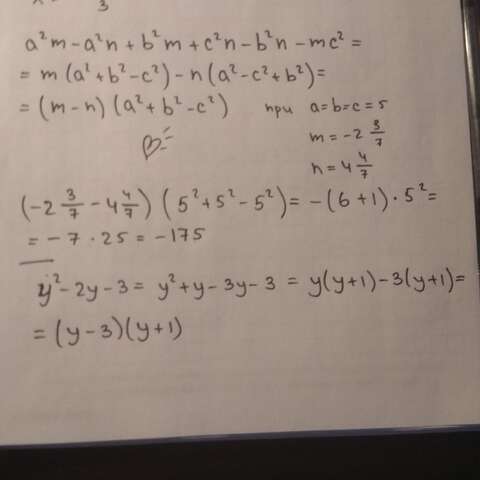 3
a²m - a²n + b²m + c²n - b²n - mc² =
= m (a² + b² - c²) - n (a² - c² + b²) =
= (m - n) (a² + b² - c²) при a = b = c = 5
m = -2 3/7
n = 4 4/7
(-2 3/7 - 4 4/7) (5² + 5² - 5²) = -(6 + 1) · 5² =
= -7 · 25 = -175
y² - 2y - 3 = y² + y - 3y - 3 = y(y+1) - 3(y+1) =
= (y - 3)(y + 1)